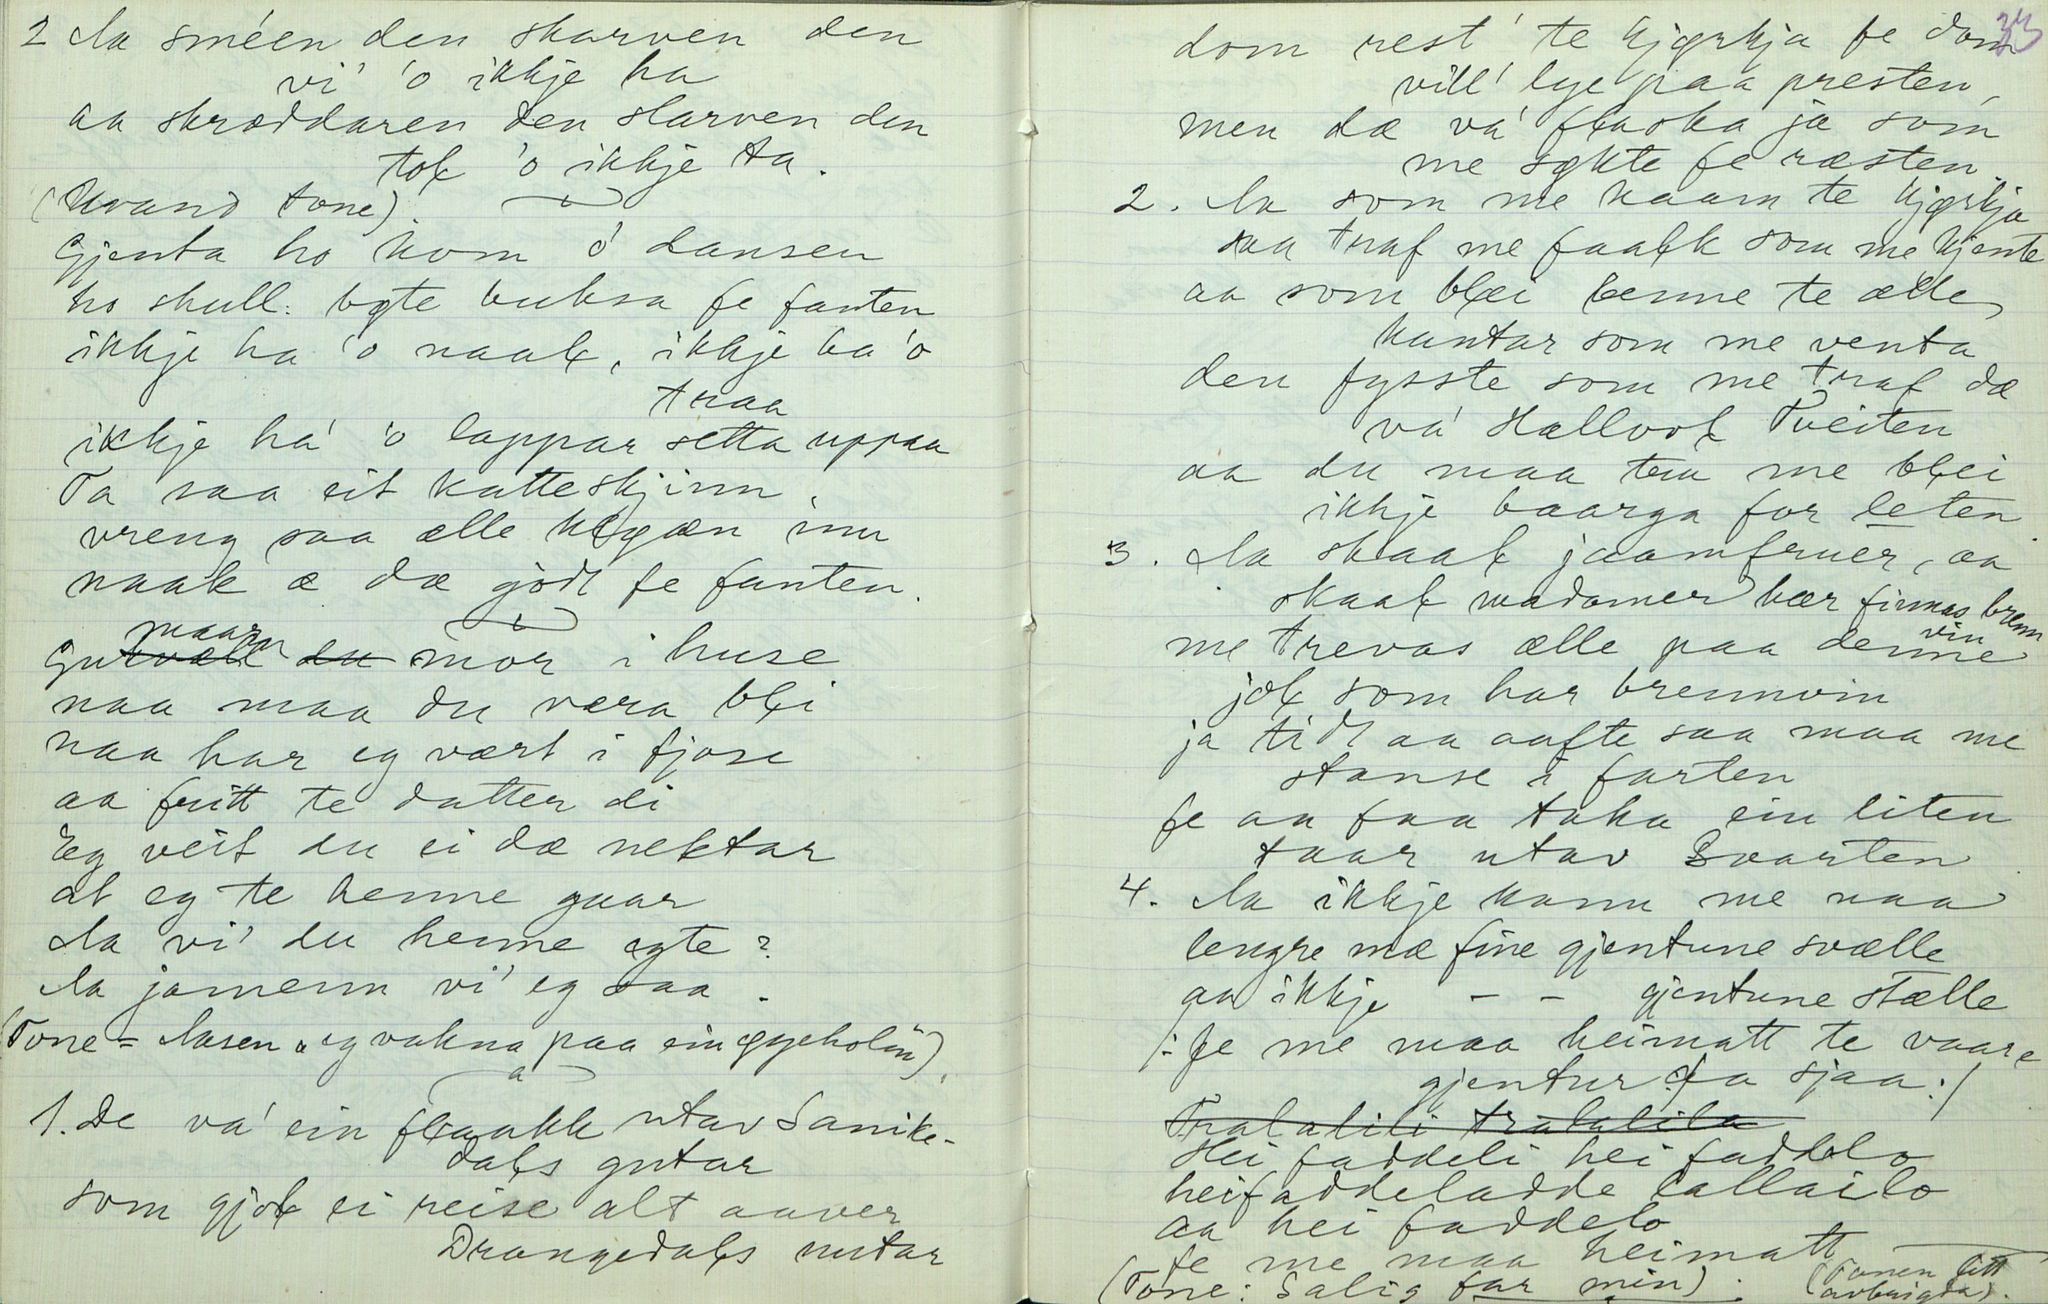 2 Aa sméen den skarven den
vi' 'o ikkje ha
aa skræddaren den slarven den
tok 'o ikkje ta.
(Kvand tone).
Gjenta ho kom ó dansen
ho skull: bøte buksa fe fanten
ikkje ha 'o naal, ikkje ha 'o
traa
ikkje há 'o lappar setta uppaa
Ta saa eit katteskjinn,
vreng saa alle kløæn inn
naak æ dæ godt fe fanten.
maarn
Gu mor i huse
naa maa du væra bli
naa har eg vært i fjose
aa fritt te datter di
Eg veit du ei dæ nektar
at eg te henne gaar
Aa vi' du henne egte?
Aa jamenn vi' eg saa.
(Tone = Aasen "eg vakna paa ein Øyeholm").
1. De va' ein flaakk utav Sanike-
dals gutar
som gjol ei reise alt aaver
Drangedals nutar
33
dom rest' te kjørkja fe dom
vill' lye paa presten,
men dæ va' flaska ja som
me søkte fe ræsten
2. Aa som me kaam te kjørkja
saa traf me faalk som me kjente
aa som blei benne te alle
kantar som me venta
den fysste som me traf dæ
va' Hallvol Tveiten
aa du maa tru me blei
ikkje baarga for leten
3. Aa skaal jaamfruer, aa
skaal madamer hær finnas brenn
vin
me trevas alle paa denne
jol som har brennvin
ja tidt aa aafte saa maa me
stanse i farten
fe aa faa taka ein liten
taar utav Svarten
4. Aa ikkje kann me naa
lengre mæ fine gjentune svalle
aa ikkje - - gjentune stalle
/: fe me maa heimatt te vaare
gjentur fa sjaa :/
Tralalili tralalila
Hei faddeli hei faddelo
heifaddeladde lallailo
aa hei faddelo
fe me maa heimatt
(Tone: Salig far min). (Tonen litt
avbrigda).